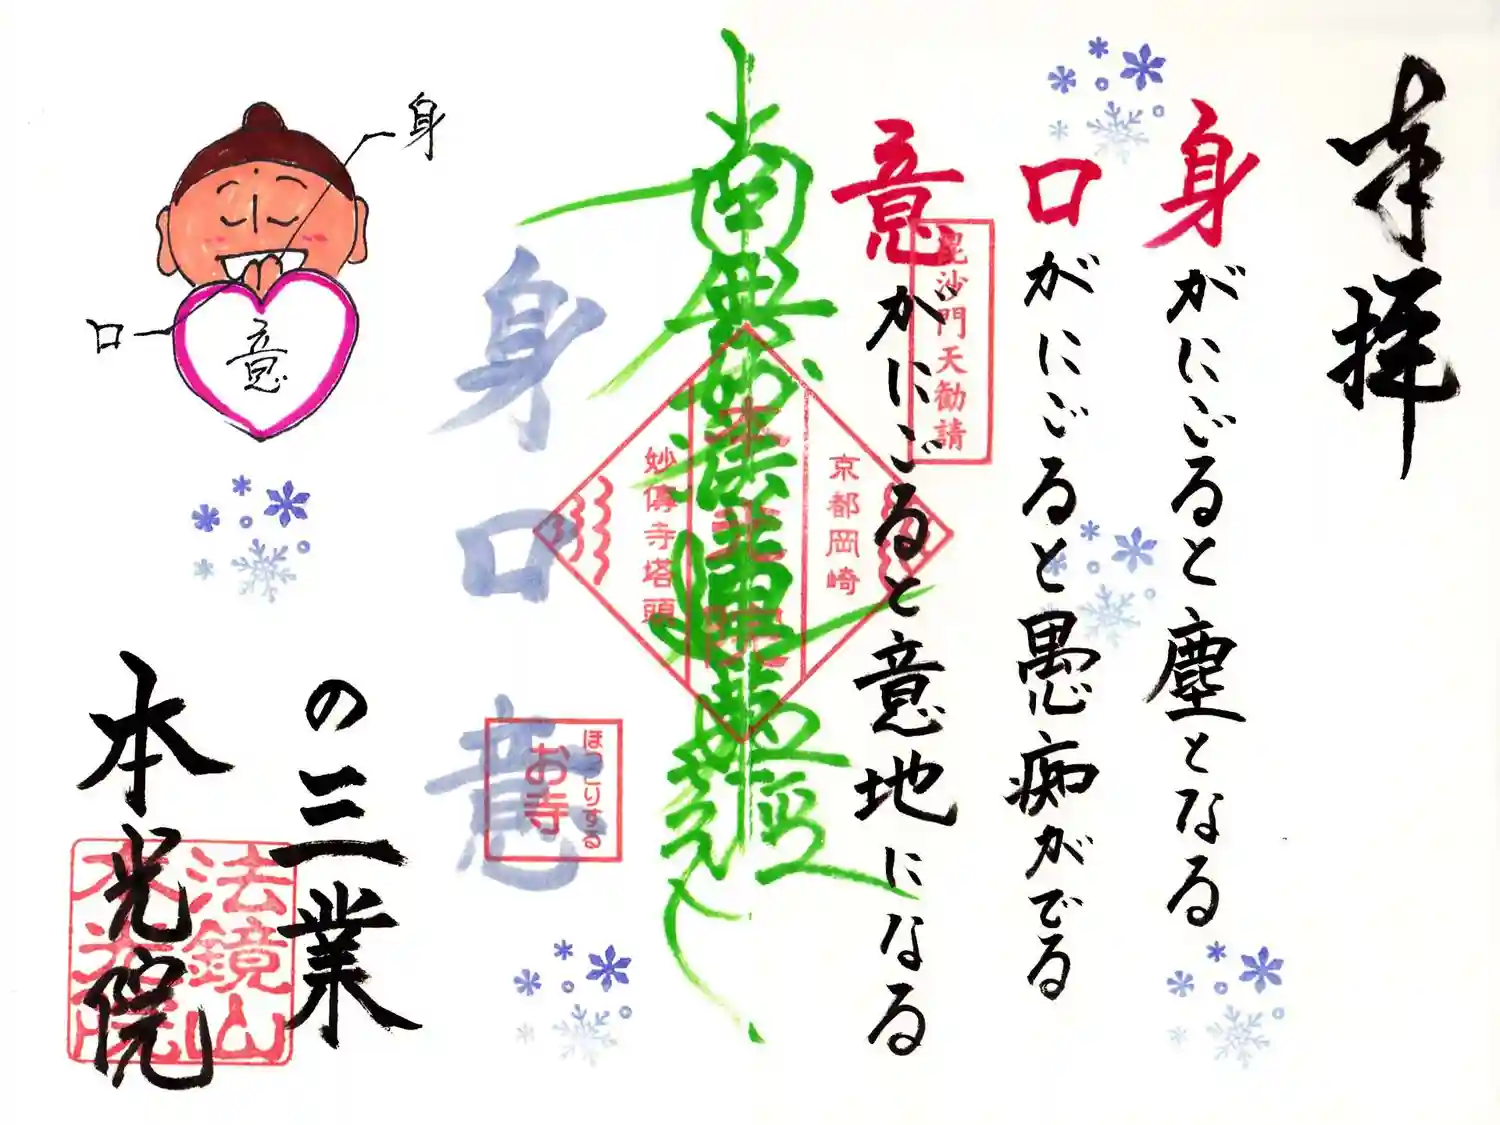 奉拝
身がにごると塵となる
口がにごると愚痴がでる
意がにごると意地になる
毘沙門天勧請
南無妙法蓮華経
京都岡崎
本光院
妙傳寺塔頭
身口意
ほっこりする
お寺
の三業
身
口
意
本光院
法鏡山
本光院